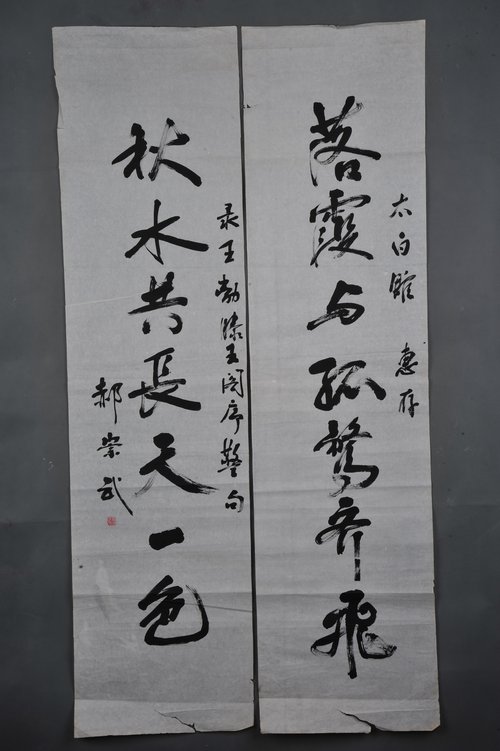 惠存
落霞与孤鹜齐飞
录王勃滕王阁序警句
秋水共長天一色
郝崇武